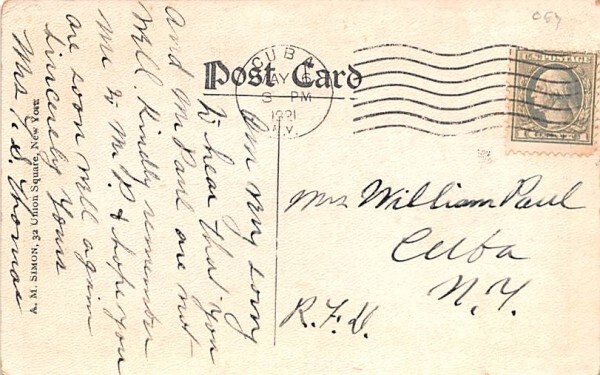 064
CUBA
MAY 6
3 PM
1921
N.Y.
U.S. POSTAGE
Post Card
Am very sorry
to hear that you
and Mr Paul are not
Well. Kindly remember
me to Mr. P. & hope you
are soon well again
Sincerely Yours
Mrs. S. Thomas
A. M. SIMON, 32 Union Square, New York
Mrs William Paul
Cuba
N.Y.
R.F.D.